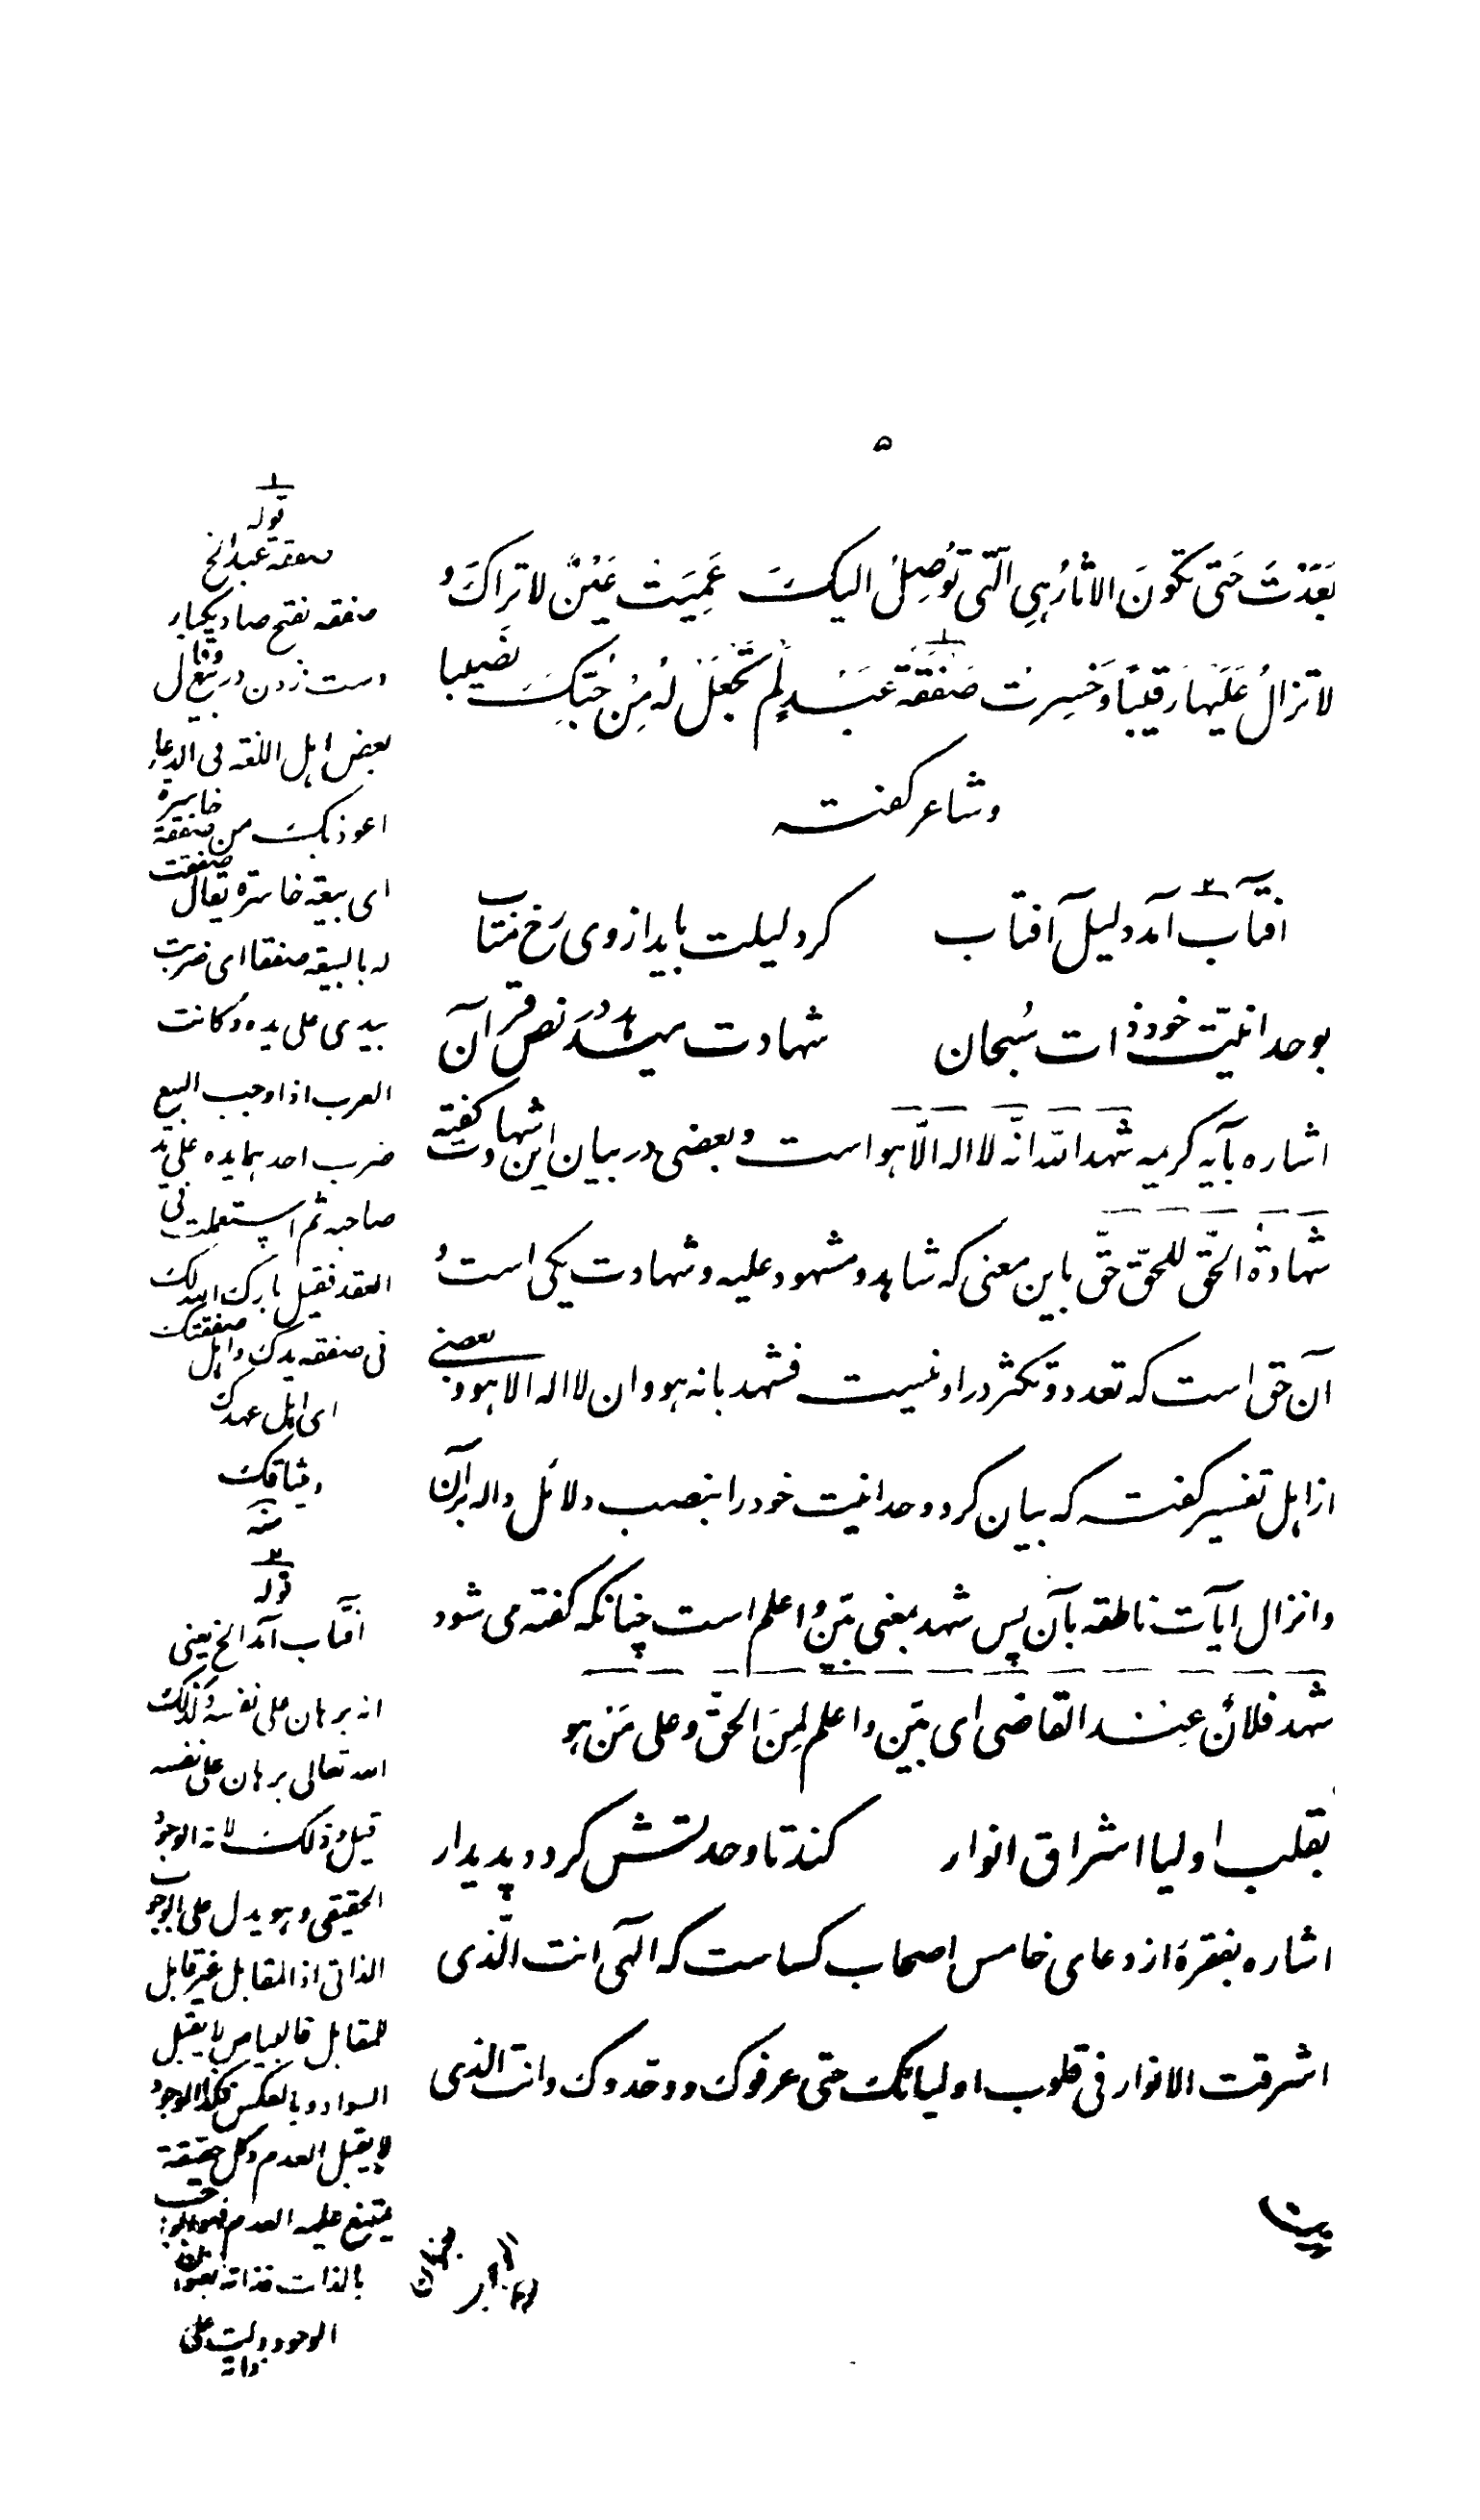 ۵
بَعُدْتَ حَتی تکُونَ الاثارُ هِی الّتی تُوصِلُ الیکَ عَمِیَتْ عَیْنٌ لا تراکَ وُ
لا تزالُ عَلَیْها رَقیبًا وَ خَسِرتْ صَفقَةُ عَبْدٍ لَم تَجْعَلْ لهُ مِنْ حُبّکَ نَصیبا
و شاعر کفته
آفتاب آمد دلیل آفتاب کر دلیلت باید از وی رخ متاب
بوحدانیّت خود ذات سُبحان شهادت میدهد در نص قرآن
اشاره بآیه کریمه شهد الله انّه لا اله الّا هو است و بعضی در بیان این شهادت کفته
شهادة الحّق للحقّ حقّ باین معنی که شاهد و مشهود علیه و شهادت یکی است وُ
آن حق است که تعدد و تکثر در او نیست فشهد بانه هو و ان لا اله الا هو و بعضے
از اهل تفسیر کفته که بیان کرد وحدانیت خود را بنصب دلائل داله بر آن
و انزال ایآت ناطقه بآن پس شهد بمعنی بیّن و اعلم است چنانکه کفته می شود
شهد فلانٌ عِند القاضی ای بیّن و اعلم لِمَن الحقّ و علی مَن هو
بقلب اولیا اشراق انوار کند تا وحدتش کردد پدیدار
اشاره بفقرهٔ از دعای خامس اصحاب کساست که الهی انت الّذی
اشرقت الانوار فی قلوب اولیائک حتی عرفوک و وحّدوک و انت الذی
۱
قوله
صفقه عبد الخ
صفقه بفتح صاد یکبار
دست زدن در بیع قال
بعض اهل اللغة فی الدعاء
اعوذ بک من صفقة خاسرة
ای بیعة خاسرة یقال صفقت
له بالبیعة صفقا ای ضربت
بیدی علی یده و کانت
العرب اذا وجب البیع
ضرب احدهما یده علی ید
صاحبه ثم استعملت فی
العقد فقیل بارک الله لک
فی صفقة یدک و اهل صفقتک
ای اهل عهدک
و میثاقک
منه
۲
قوله
آفتاب آمد الخ یعنی
انه برهان علی نفسه و کذلک
الله تعالی برهان علی نفسه
قیل و ذلک لانه الوجود
الحقیقی و هو یدل علی الوجوب
الذاتی اذ المقابل غیر قابل
للمقابل فالبیاض لا یقبل
السواد و بالعکس فکذا الوجود
لا یقبل العدم و کل حقیقة
یمتنع علیه العدم فهو الواجب
بالذات فذاته
الوجود دلیت علی
ذاته